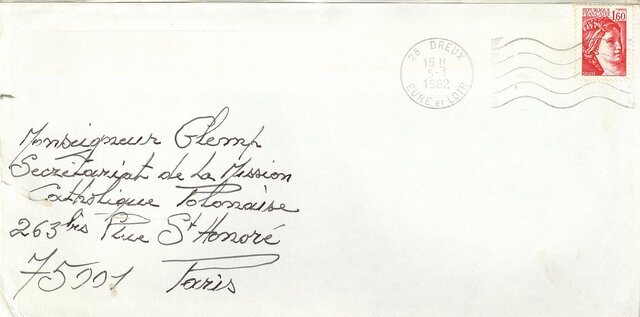 28 DREUX
15 H
5-1
1982
EURE ET LOIR
1,60
Monseigneur Glemp
Secrétariat de la Mission
Catholique Polonaise
263 bis Rue St Honoré
75001 Paris